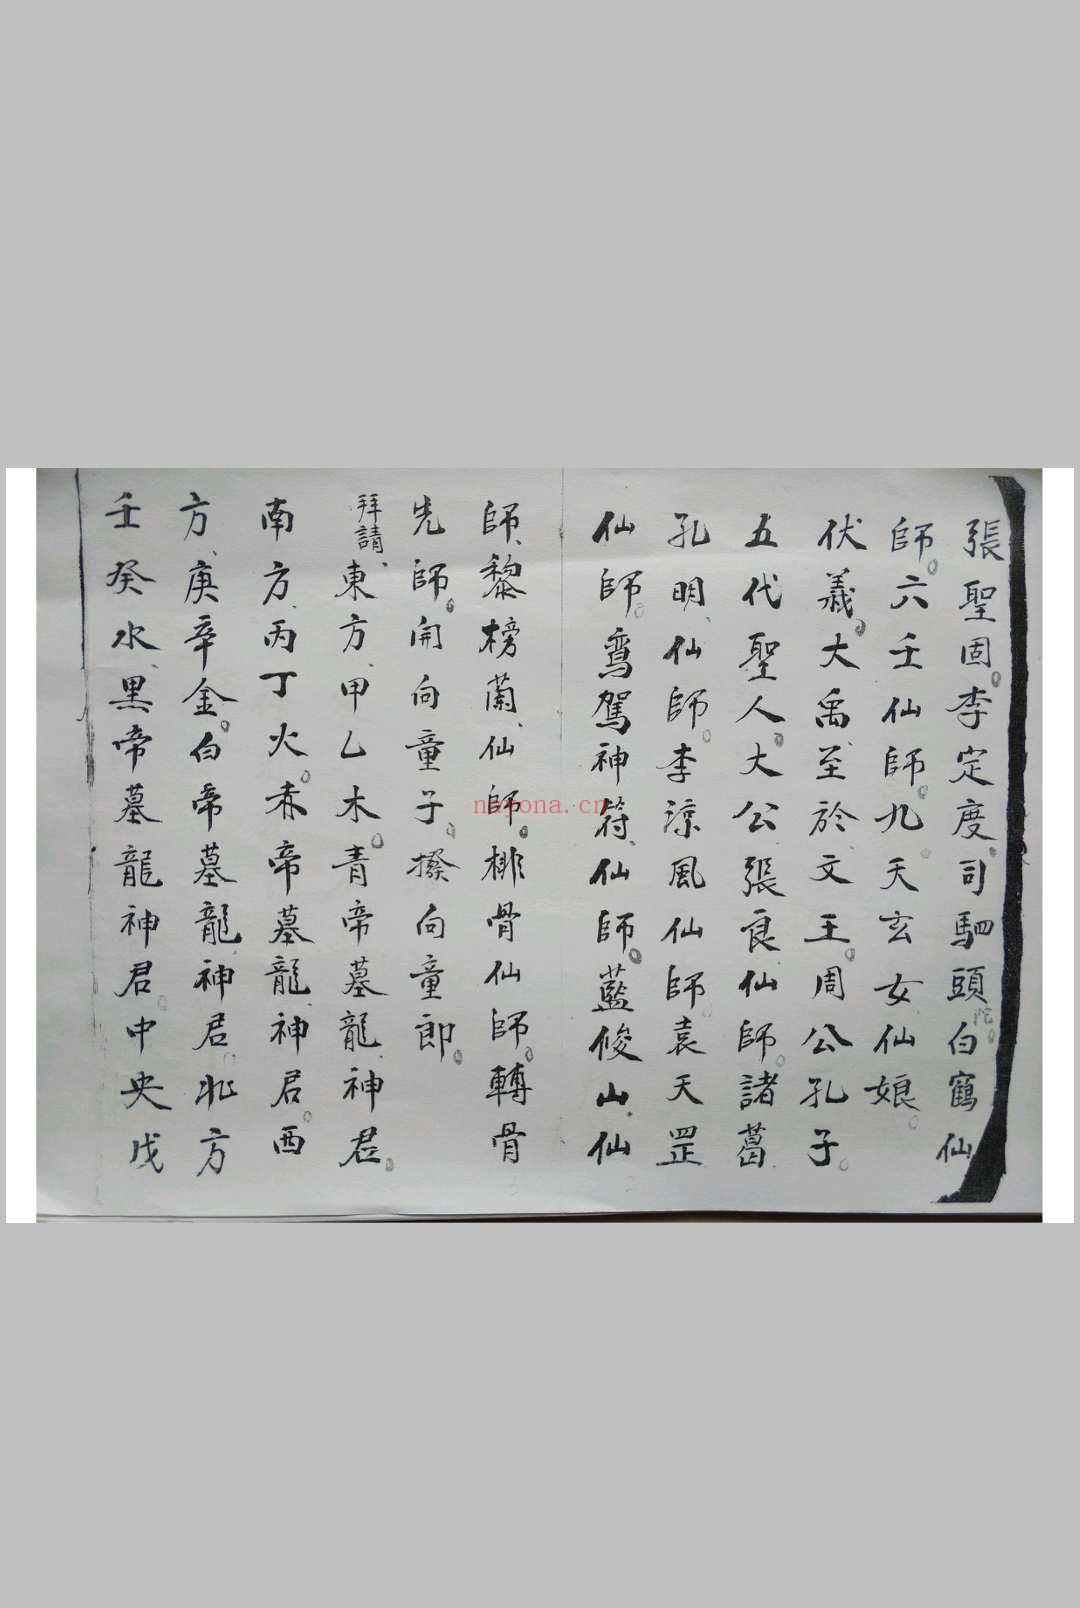 張聖固。李定度。司駟頭陀。白鶴仙
師。六壬仙師。九天玄女仙娘。
伏義。大禹至於文王。周公孔子。
五代聖人。大公張良仙師。諸葛
孔明、仙師。李涼風仙師。袁天罡
仙師。鸾駕神符、仙師。藍俊山、仙
師、黎榜蘭、仙師。棑骨仙師。轉骨
先師。開向童子。撥向童郎。
拜請、東方、甲乙木。青帝墓龍、神君。
南方、丙丁火。赤帝墓龍、神君。西
方、庚辛金。白帝墓龍、神君。北方
壬癸水、黑帝墓龍神君。中央戊
nayona.cn